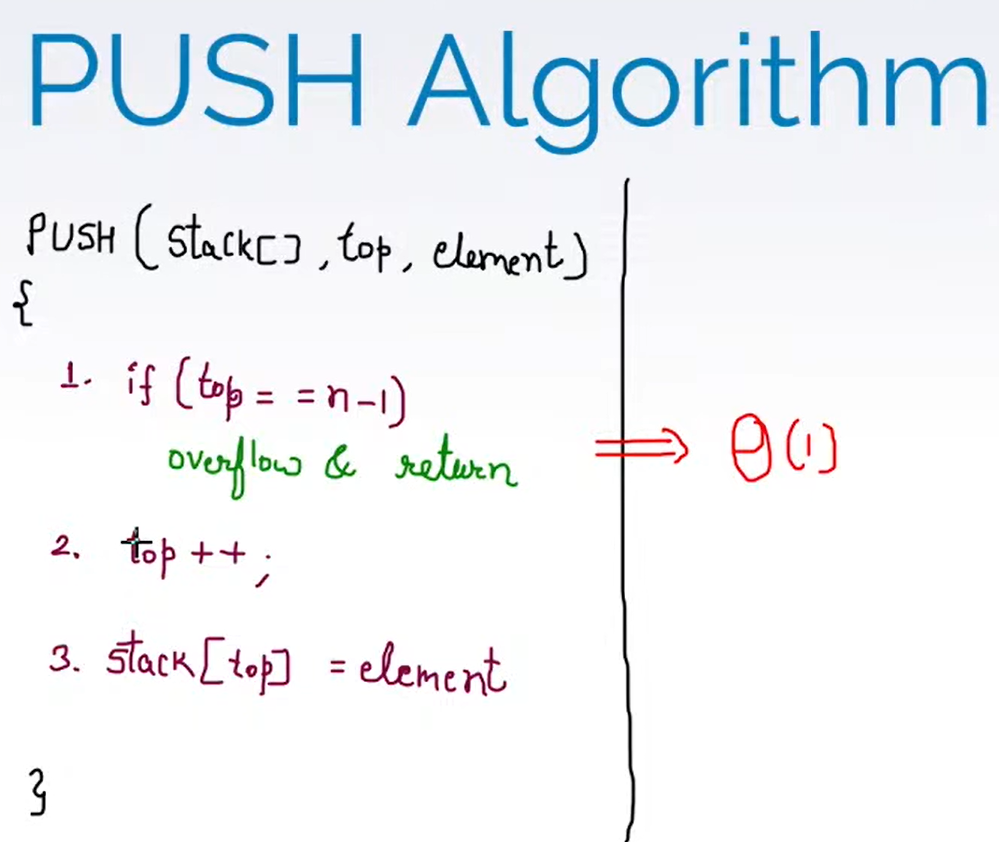 PUSH Algorithm
PUSH ( stack[] , top, element )
{
1. if ( top = = n - 1 )
overflow & return
⇒ θ(1)
2. top ++ ;
3. stack[top] = element
}